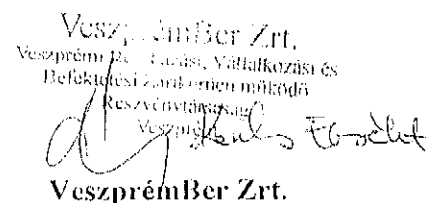 VeszprémBer Zrt.
Veszprémi Beruházási, Vállalkozási és
Befektetési Zártkörűen működő
Részvénytársaság
Veszprém
VeszprémBer Zrt.